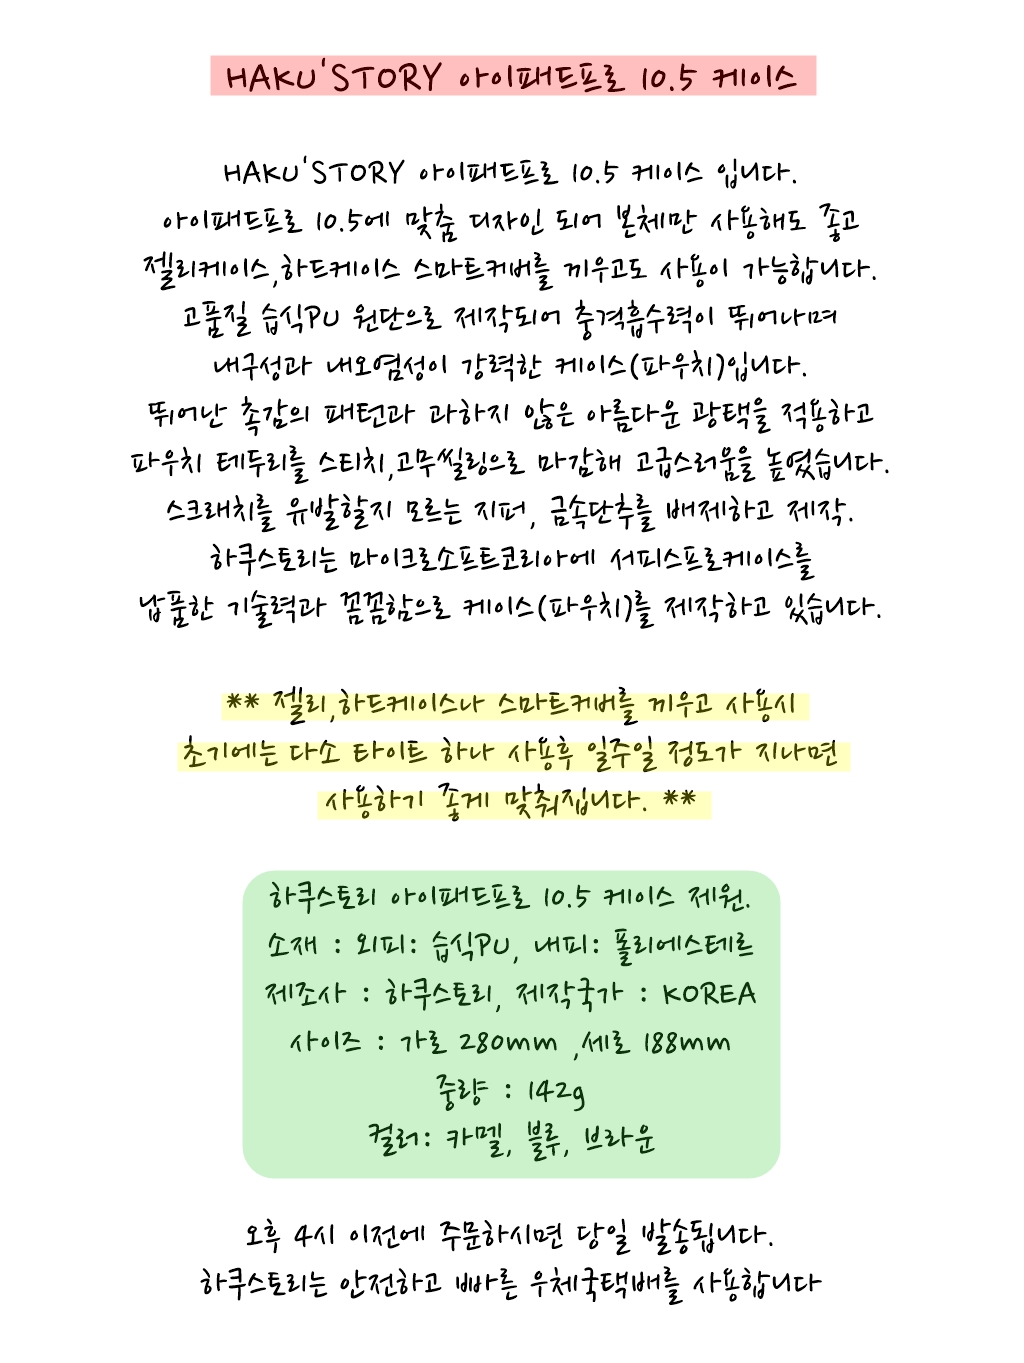 HAKU'STORY 아이패드프로 10.5 케이스
HAKU'STORY 아이패드프로 10.5 케이스 입니다.
아이패드프로 10.5에 맞춤 디자인 되어 본체만 사용해도 좋고
젤리케이스,하드케이스 스마트커버를 끼우고도 사용이 가능합니다.
고품질 습식PU 원단으로 제작되어 충격흡수력이 뛰어나며
내구성과 내오염성이 강력한 케이스(파우치)입니다.
뛰어난 촉감의 패턴과 과하지 않은 아름다운 광택을 적용하고
파우치 테두리를 스티치,고무씰링으로 마감해 고급스러움을 높였습니다.
스크래치를 유발할지 모르는 지퍼, 금속단추를 배제하고 제작.
하쿠스토리는 마이크로소프트코리아에 서피스프로케이스를
납품한 기술력과 꼼꼼함으로 케이스(파우치)를 제작하고 있습니다.
** 젤리,하드케이스나 스마트커버를 끼우고 사용시
초기에는 다소 타이트 하나 사용후 일주일 정도가 지나면
사용하기 좋게 맞춰집니다. **
하쿠스토리 아이패드프로 10.5 케이스 제원.
소재 : 외피: 습식PU, 내피: 폴리에스테르
제조사 : 하쿠스토리, 제작국가 : KOREA
사이즈 : 가로 280mm ,세로 188mm
중량 : 142g
컬러: 카멜, 블루, 브라운
오후 4시 이전에 주문하시면 당일 발송됩니다.
하쿠스토리는 안전하고 빠른 우체국택배를 사용합니다